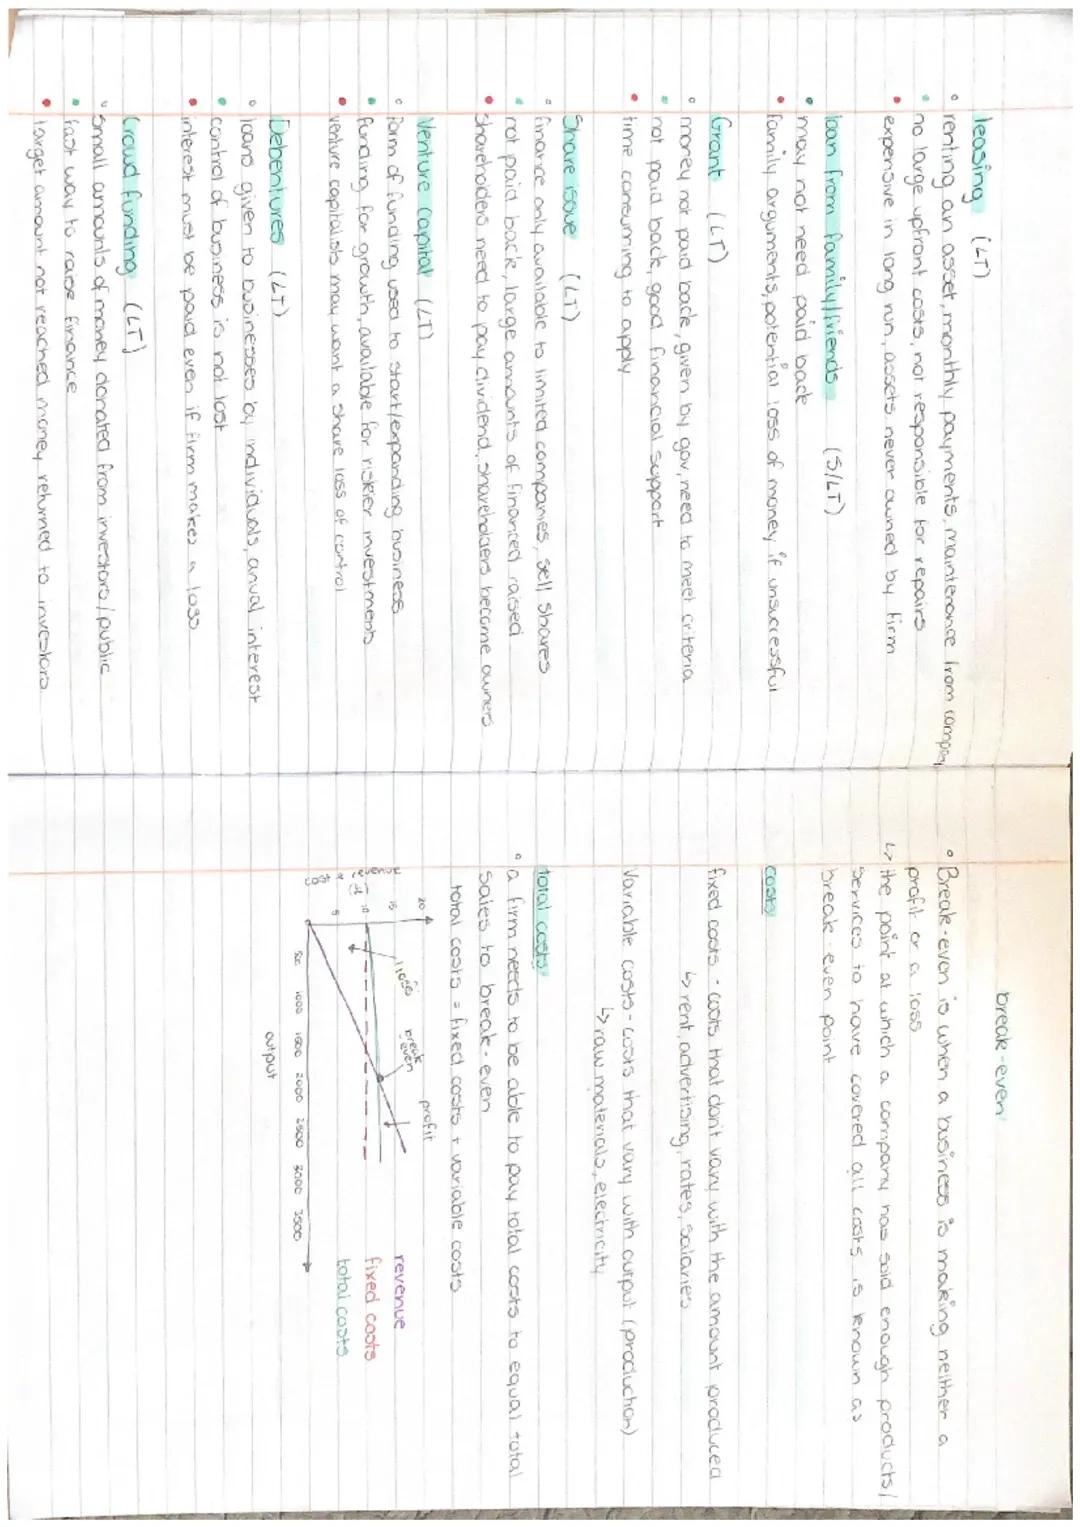 leasing (LT)
renting an asset, monthly payments, maintenance from company
no large upfront costs, not responsible for repairs
expensive in long run, assets never owned by firm
loan from family/friends (S/LT)
may not need paid back
family arguments, potential loss of money if unsuccessful
Grant (LT)
money not paid back, given by gov, need to meet criteria
not paid back, good financial support
time consuming to apply
Share issue (LT)
finance only available to limited companies, sell shares
not paid back, large amounts of financed raised
shareholders need to pay dividend, shareholders become owners
Venture Capital (LT)
form of funding used to start/expanding business
funding for growth, available for riskier investments
venture capitalists may want a share loss of control
Debentures (LT)
loans given to businesses by individuals, anual interest
control of business is not lost
interest must be paid even if firm makes a loss
Crowd funding (LT)
small amounts of money donated from investors/public
fast way to raise finance
target amount not reached money returned to investors
break-even
Break-even is when a business is making neither a
profit or a loss
↳ the point at which a company has sold enough products/
services to have covered all costs is known as
break-even point
costs
fixed costs - costs that don't vary with the amount produced
↳ rent, advertising, rates, salaries
Variable costs - costs that vary with output (production)
↳ raw materials, electricity
total costs
a firm needs to be able to pay total costs to equal total
sales to break-even
total costs = fixed costs + variable costs
20
15
10
5
revenue
cost
loss
break even
profit
revenue
fixed costs
total costs
500 1000 1500 2000 2500 3000 3500
output